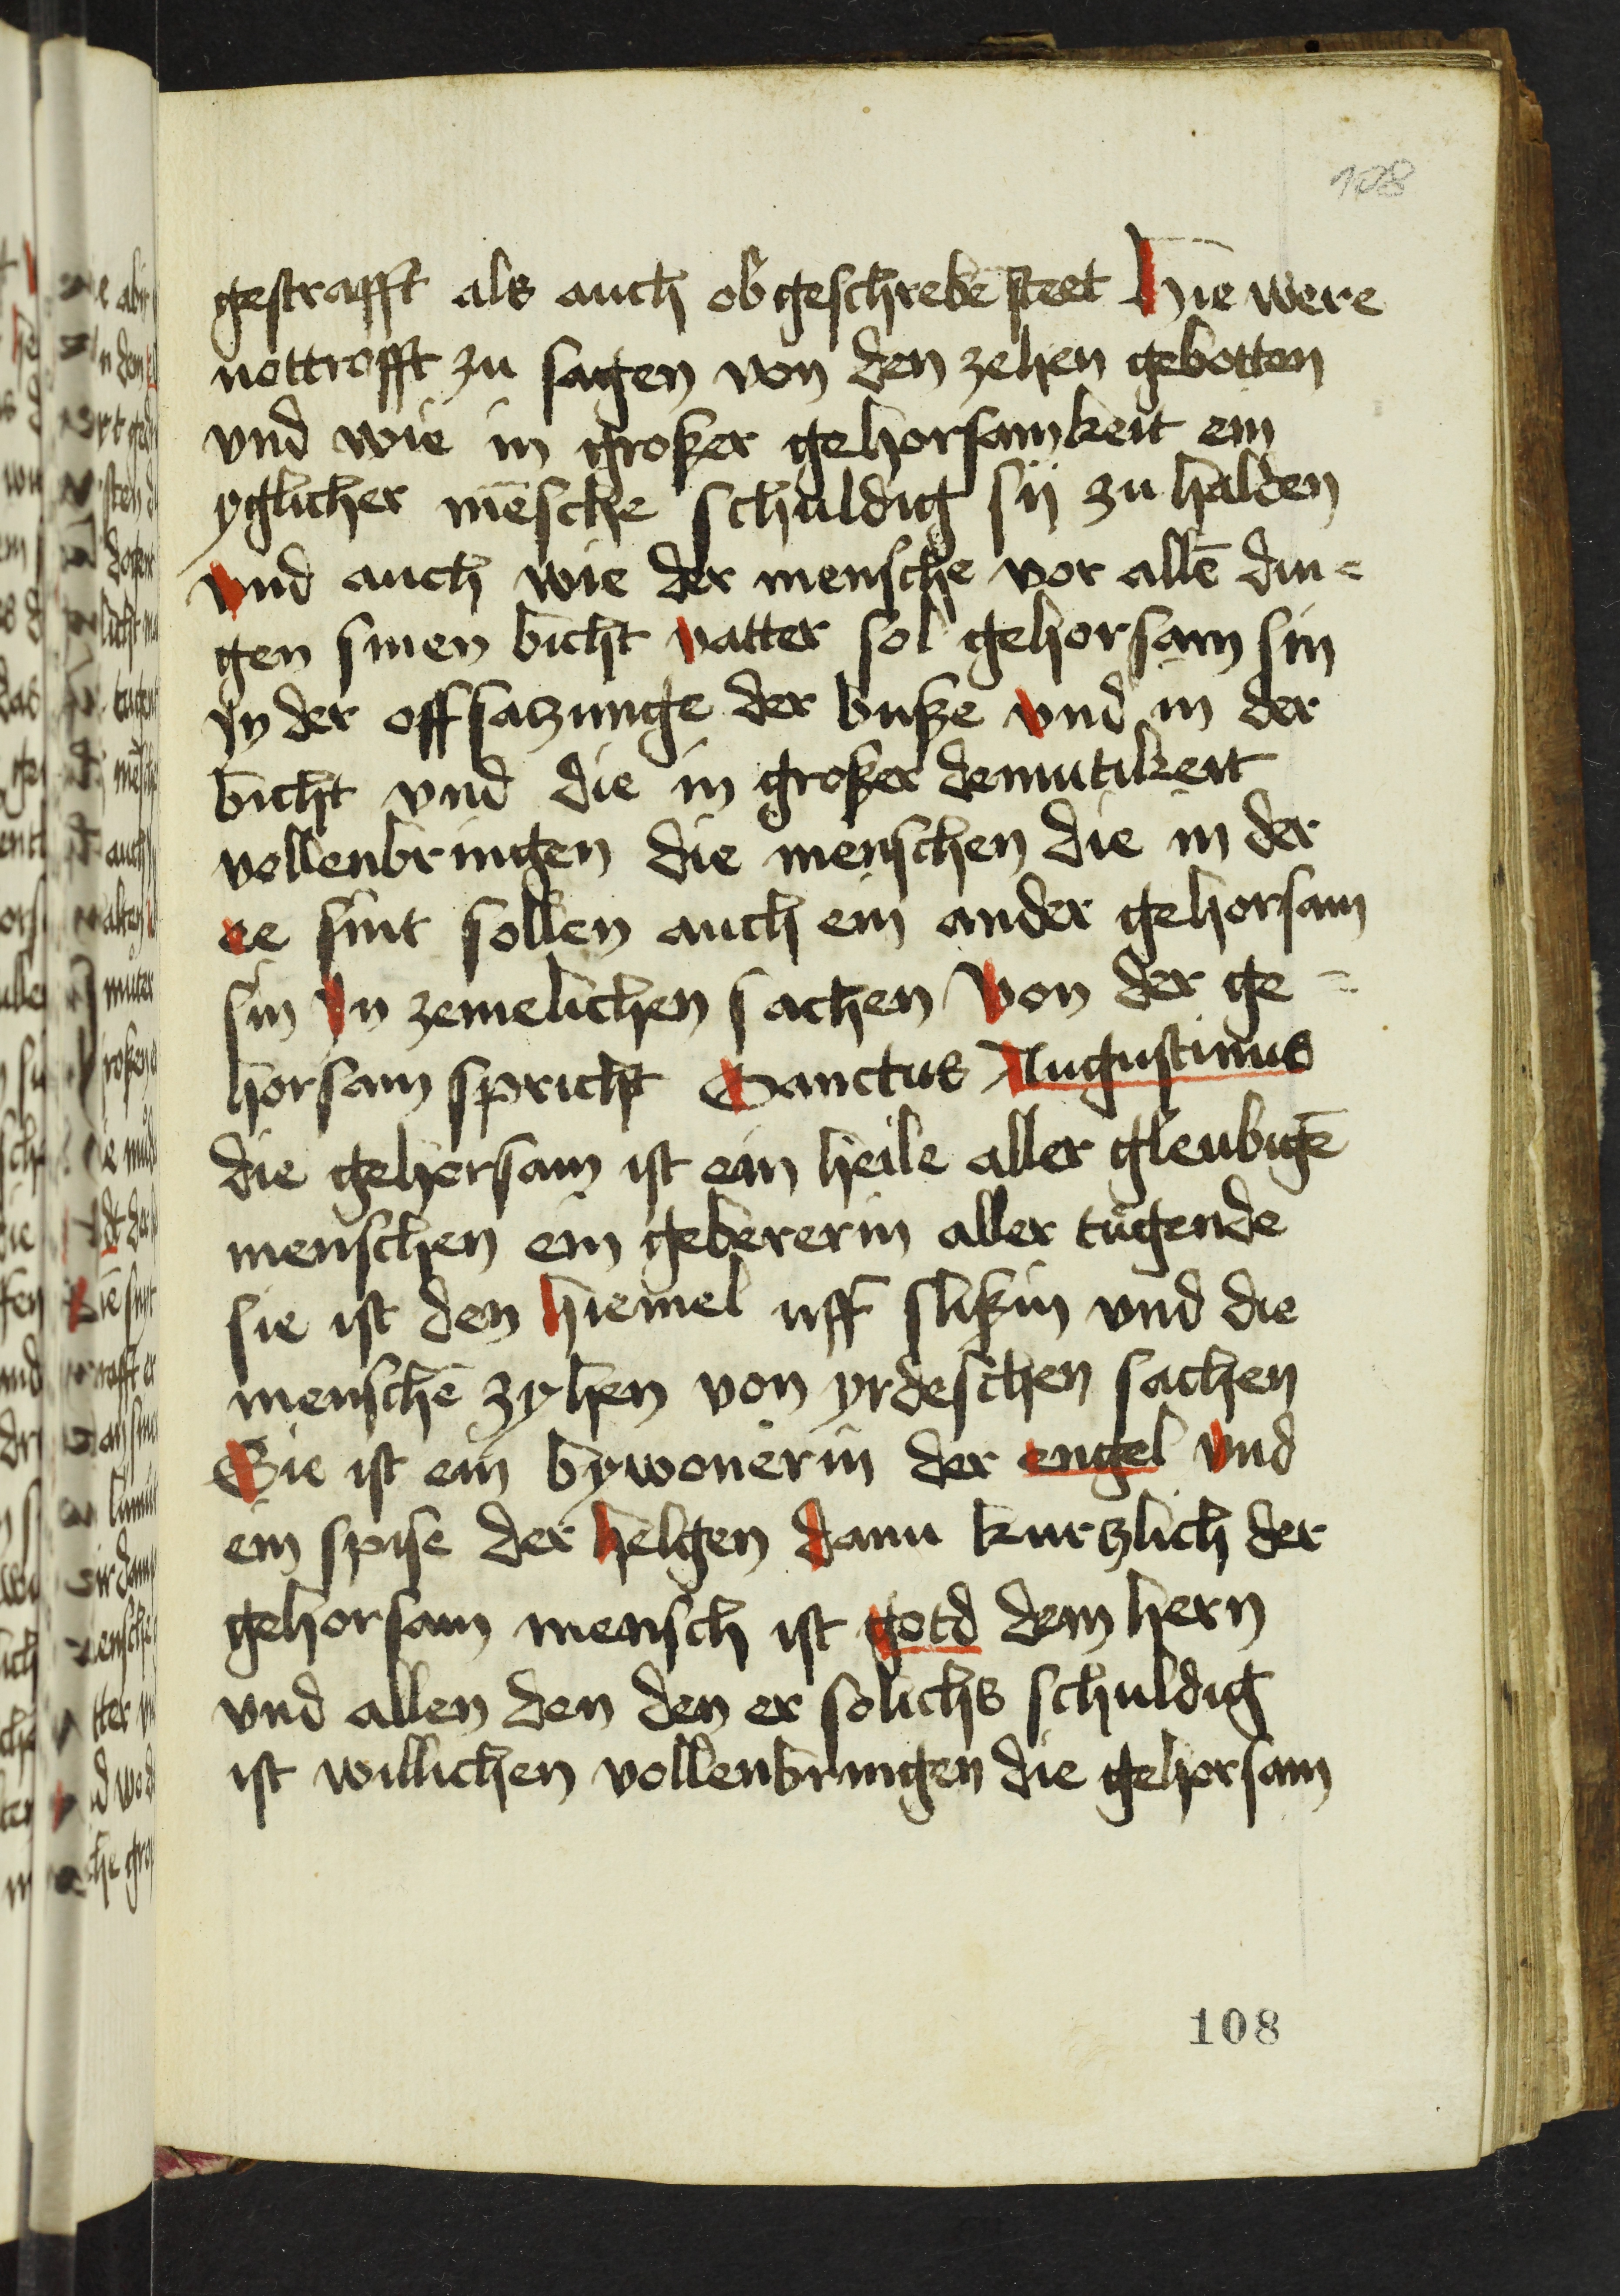 108
gestrafft als auch obgeschrebē steet Hie were
nottrofft zu sagen von den zehen gebotten
vnd wie in großer gehorsamkeit ein
yglicher mēsche schuldig sij zu halden
vnd auch wie der mensche vor allē din=
gen sinen bicht vatter sol gehorsam sin
Jn der offsatzunge der buße vnd in der
bicht vnd die in großer demutikeit
vollenbringen die menschen die in der
ee sint sollen auch ein ander gehorsam
sin Jn zemelichen sachen Von der ge=
horsam spricht Sanctus Augustinus
die gehorsam ist ein heile aller gleubigē
menschen ein gebererin aller tugende
sie ist den hiemel uff slißin vnd die
menschē zyhen von yrdeschen sachen
Sie ist ein bywonerin der engel vnd
ein spise der helgen dann kurtzlich der
gehorsam mensch ist gotd dem hern
vnd allen den den er solichs schuldig
ist willichen vollenbringen die gehorsam
108